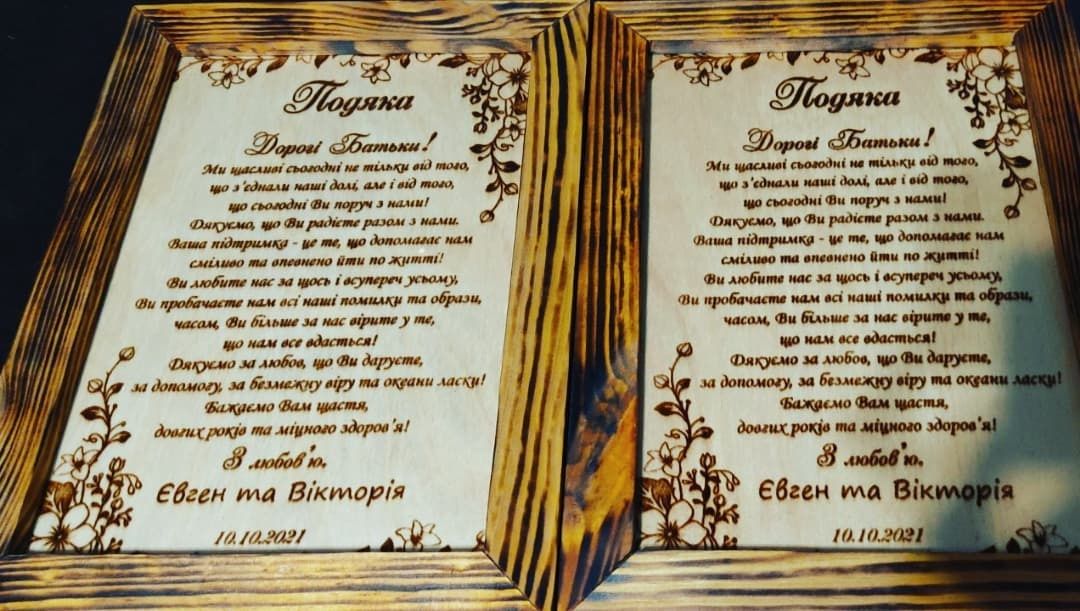 Подяка
Дорогі Батьки!
Ми щасливі сьогодні не тільки від того,
що з'єднали наші долі, але і від того,
що сьогодні Ви поруч з нами!
Дякуємо, що Ви радієте разом з нами.
Ваша підтримка - це те, що допомагає нам
сміливо та впевнено йти по житті!
Ви любите нас за щось і всупереч усьому,
Ви пробачаєте нам всі наші помилки та образи,
часом, Ви більше за нас вірите у те,
що нам все вдасться!
Дякуємо за любов, що Ви даруєте,
за допомогу, за безмежну віру та океани ласки!
Бажаємо Вам щастя,
довгих років та міцного здоров'я!
З любов'ю.
Євген та Вікторія
10.10.2021
Подяка
Дорогі Батьки!
Ми щасливі сьогодні не тільки від того,
що з'єднали наші долі, але і від того,
що сьогодні Ви поруч з нами!
Дякуємо, що Ви радієте разом з нами.
Ваша підтримка - це те, що допомагає нам
сміливо та впевнено йти по житті!
Ви любите нас за щось і всупереч усьому,
Ви пробачаєте нам всі наші помилки та образи,
часом, Ви більше за нас вірите у те,
що нам все вдасться!
Дякуємо за любов, що Ви даруєте,
за допомогу, за безмежну віру та океани ласки!
Бажаємо Вам щастя,
довгих років та міцного здоров'я!
З любов'ю.
Євген та Вікторія
10.10.2021